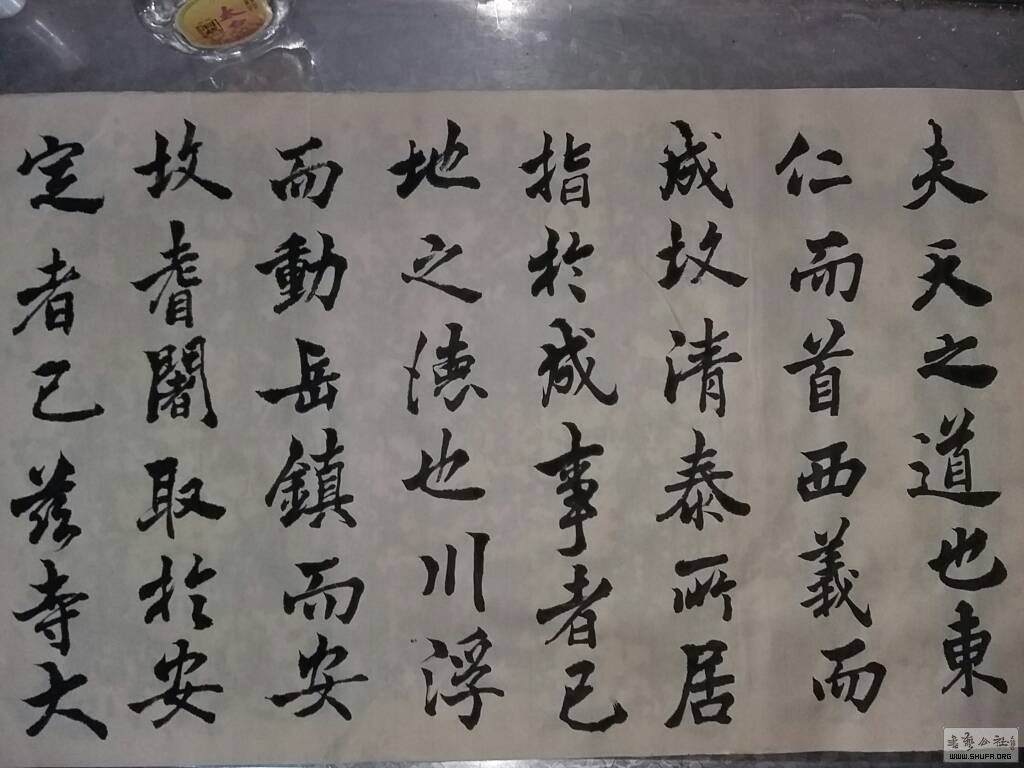 夫天之道也東
仁而首西義而
成故清泰所居
指於成事者已
地之德也川浮
而動岳鎮而安
故耆闍取於安
定者已茲寺大
書藝公社
WWW.SHUFA.ORG